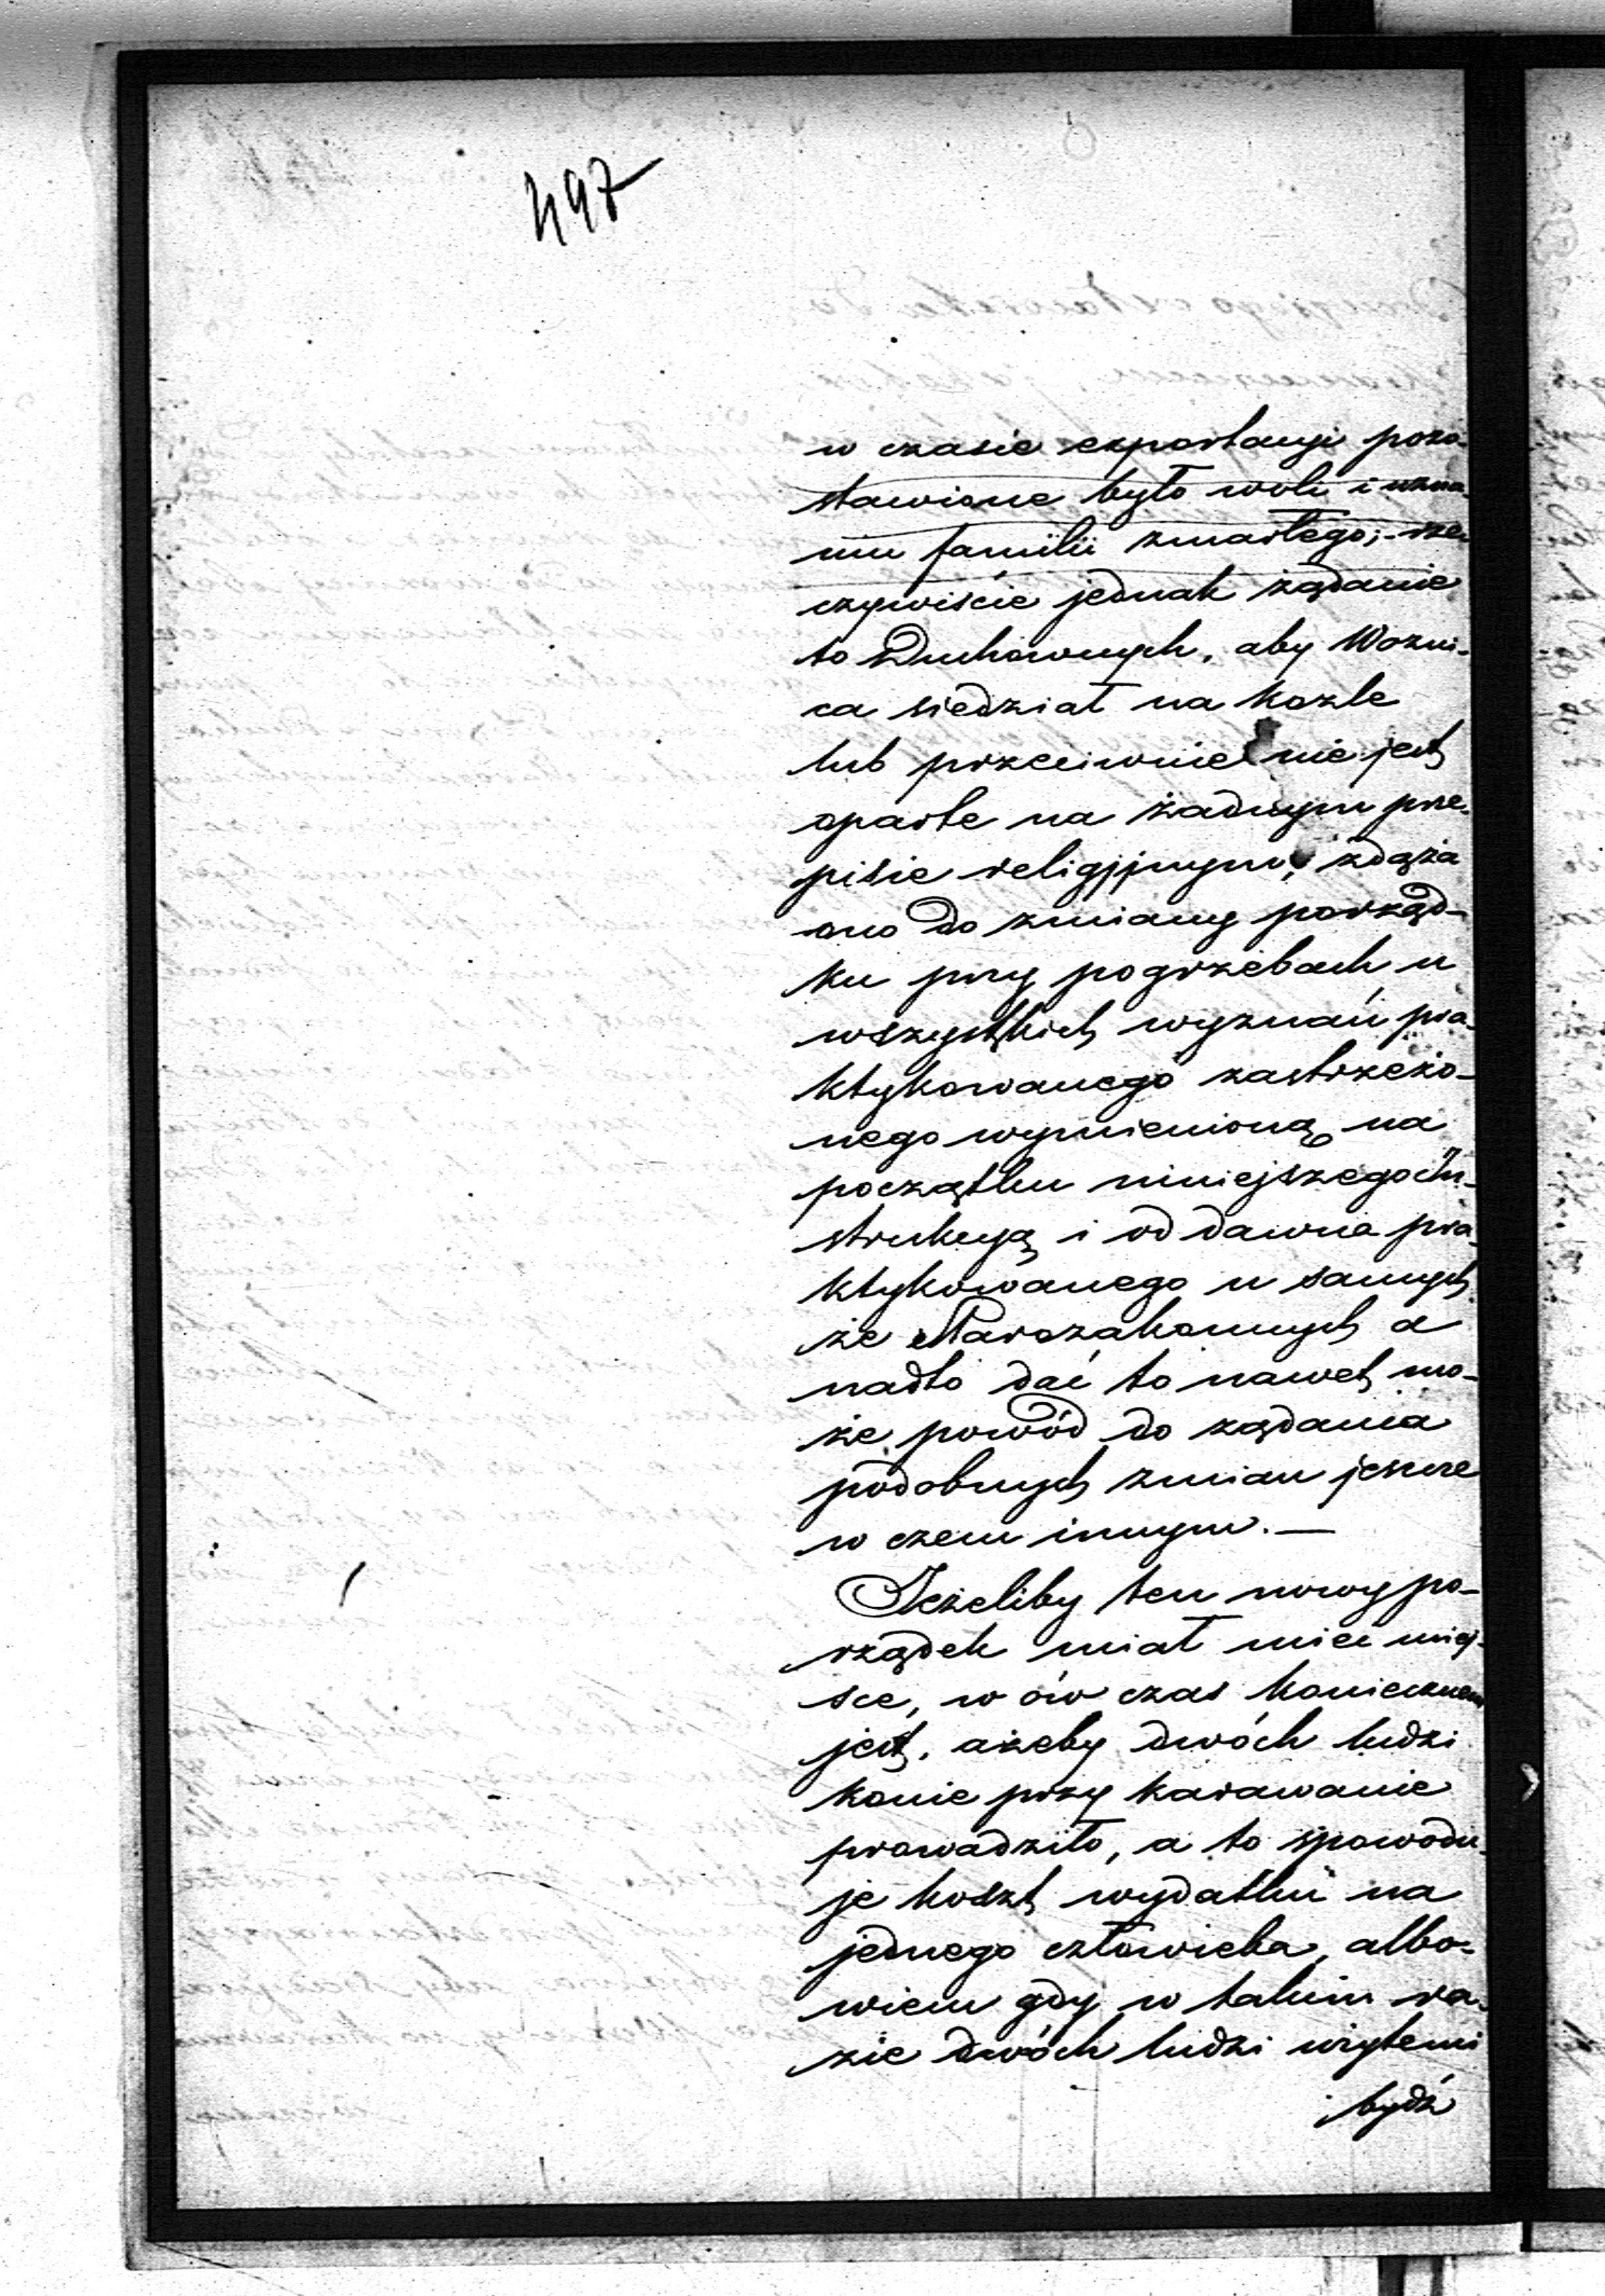 497
w czasie exportacyi pozo-
stawione było woli i uzna-
niu familii zmarłego; rze-
czywiście jednak żądanie
to Duchownych, aby Wozni-
ca siedział na kozle
lub przeciwnie nie jest
oparte na żadnym prze-
pisie religijnym, zdąża
ono do zmiany porząd-
ku przy pogrzebach u
wszystkich wyznań pra-
ktykowanego zastrzeżo-
nego wymienioną na
początku niniejszego In-
strukcyą i od dawna pra-
ktykowanego u samych
że Starozakonnych a
nadto dać to nawet mo-
że powód do żądania
podobnych zmian jeszcze
w czem innym. —
Jeżeliby ten nowy po-
rządek miał mieć miej-
sce, w ów czas koniecznem
jest, ażeby dwóch ludzi
konie przy karawanie
prowadziło, a to spowodu-
je koszt wydatku na
jednego człowieka, albo-
wiem gdy w takim ra-
zie dwóch ludzi użytemi
bydź